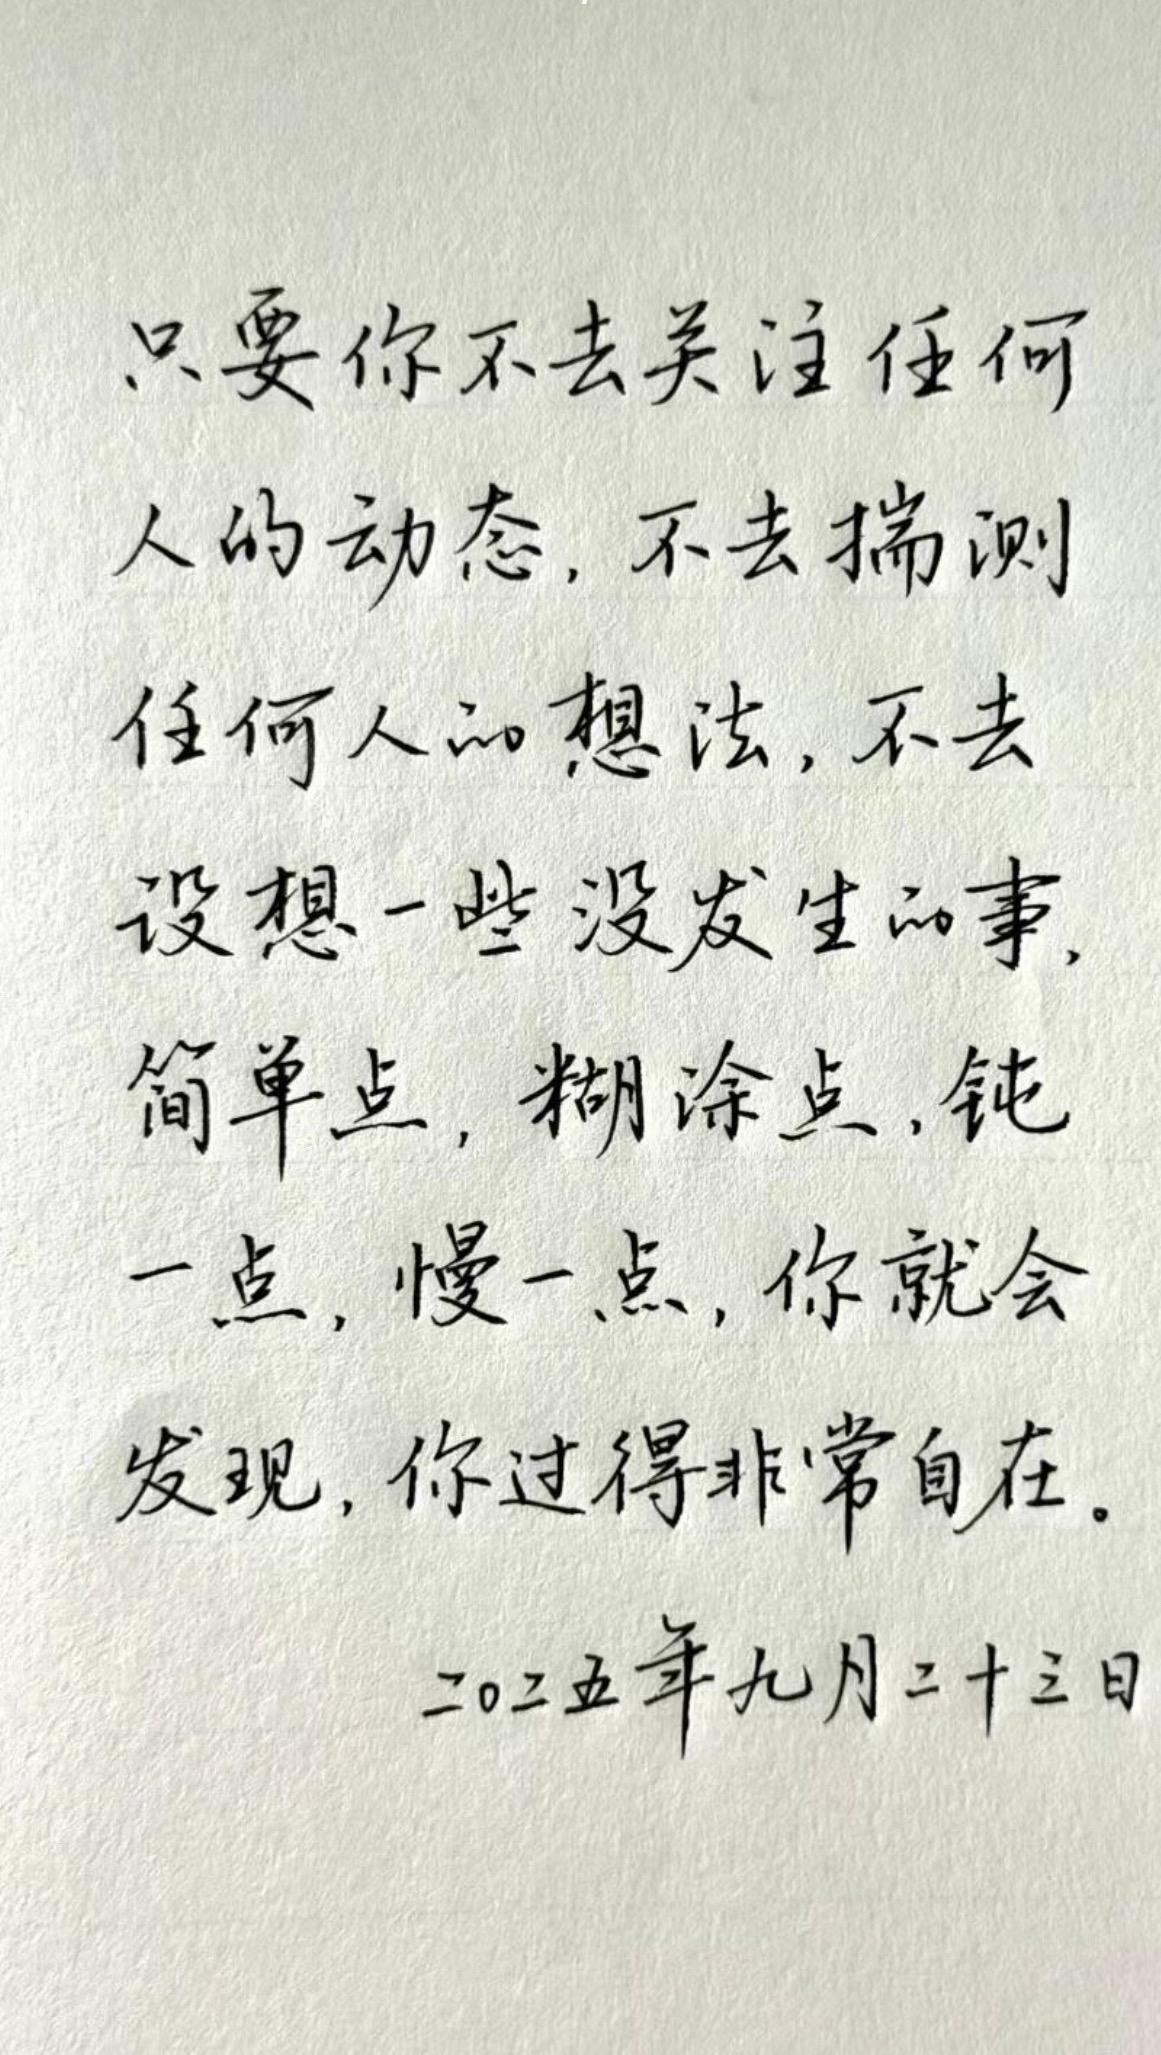 只要你不去关注任何
人的动态，不去揣测
任何人的想法，不去
设想一些没发生的事，
简单点，糊涂点，钝
一点，慢一点，你就会
发现，你过得非常自在。
二〇二五年九月二十三日